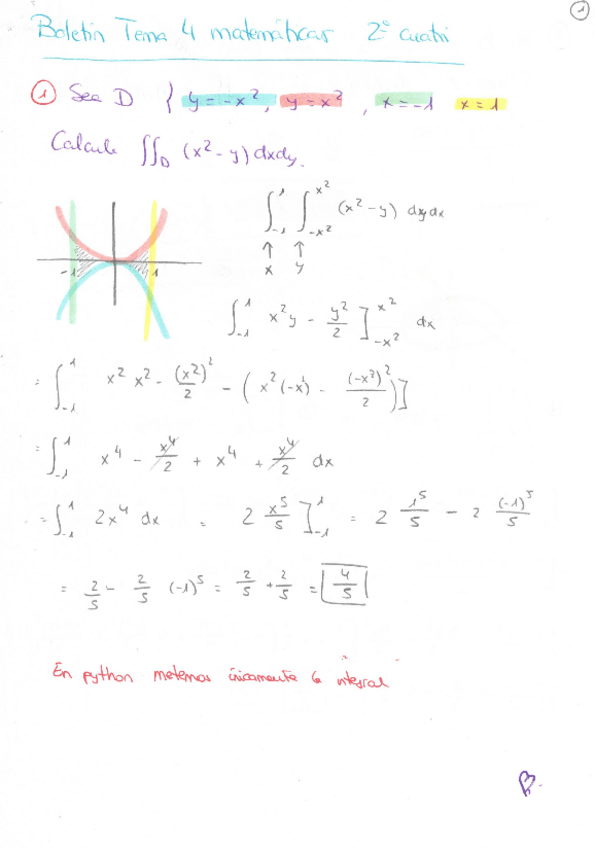 1
Boletín Tema 4 matemáticas 2º cuatri
① Sea D { y = -x², y = x², x = -1 x = 1
Calcule ∬_D (x² - y) dxdy.
∫_{-1}^{1} ∫_{-x²}^{x²} (x² - y) dydx
↑ ↑
x y
-1 1
∫_{-1}^{1} x²y - y²/2 ]_{-x²}^{x²} dx
= ∫_{-1}^{1} x² x² - (x²)²/2 - ( x² (-x²) - (-x²)²/2 ) ]
= ∫_{-1}^{1} x⁴ - x⁴/2 + x⁴ + x⁴/2 dx
= ∫_{-1}^{1} 2x⁴ dx = 2 x⁵/5 ]_{-1}^{1} = 2 1⁵/5 - 2 (-1)⁵/5
= 2/5 - 2/5 (-1)⁵ = 2/5 + 2/5 = 4/5
En python metemos únicamente la integral